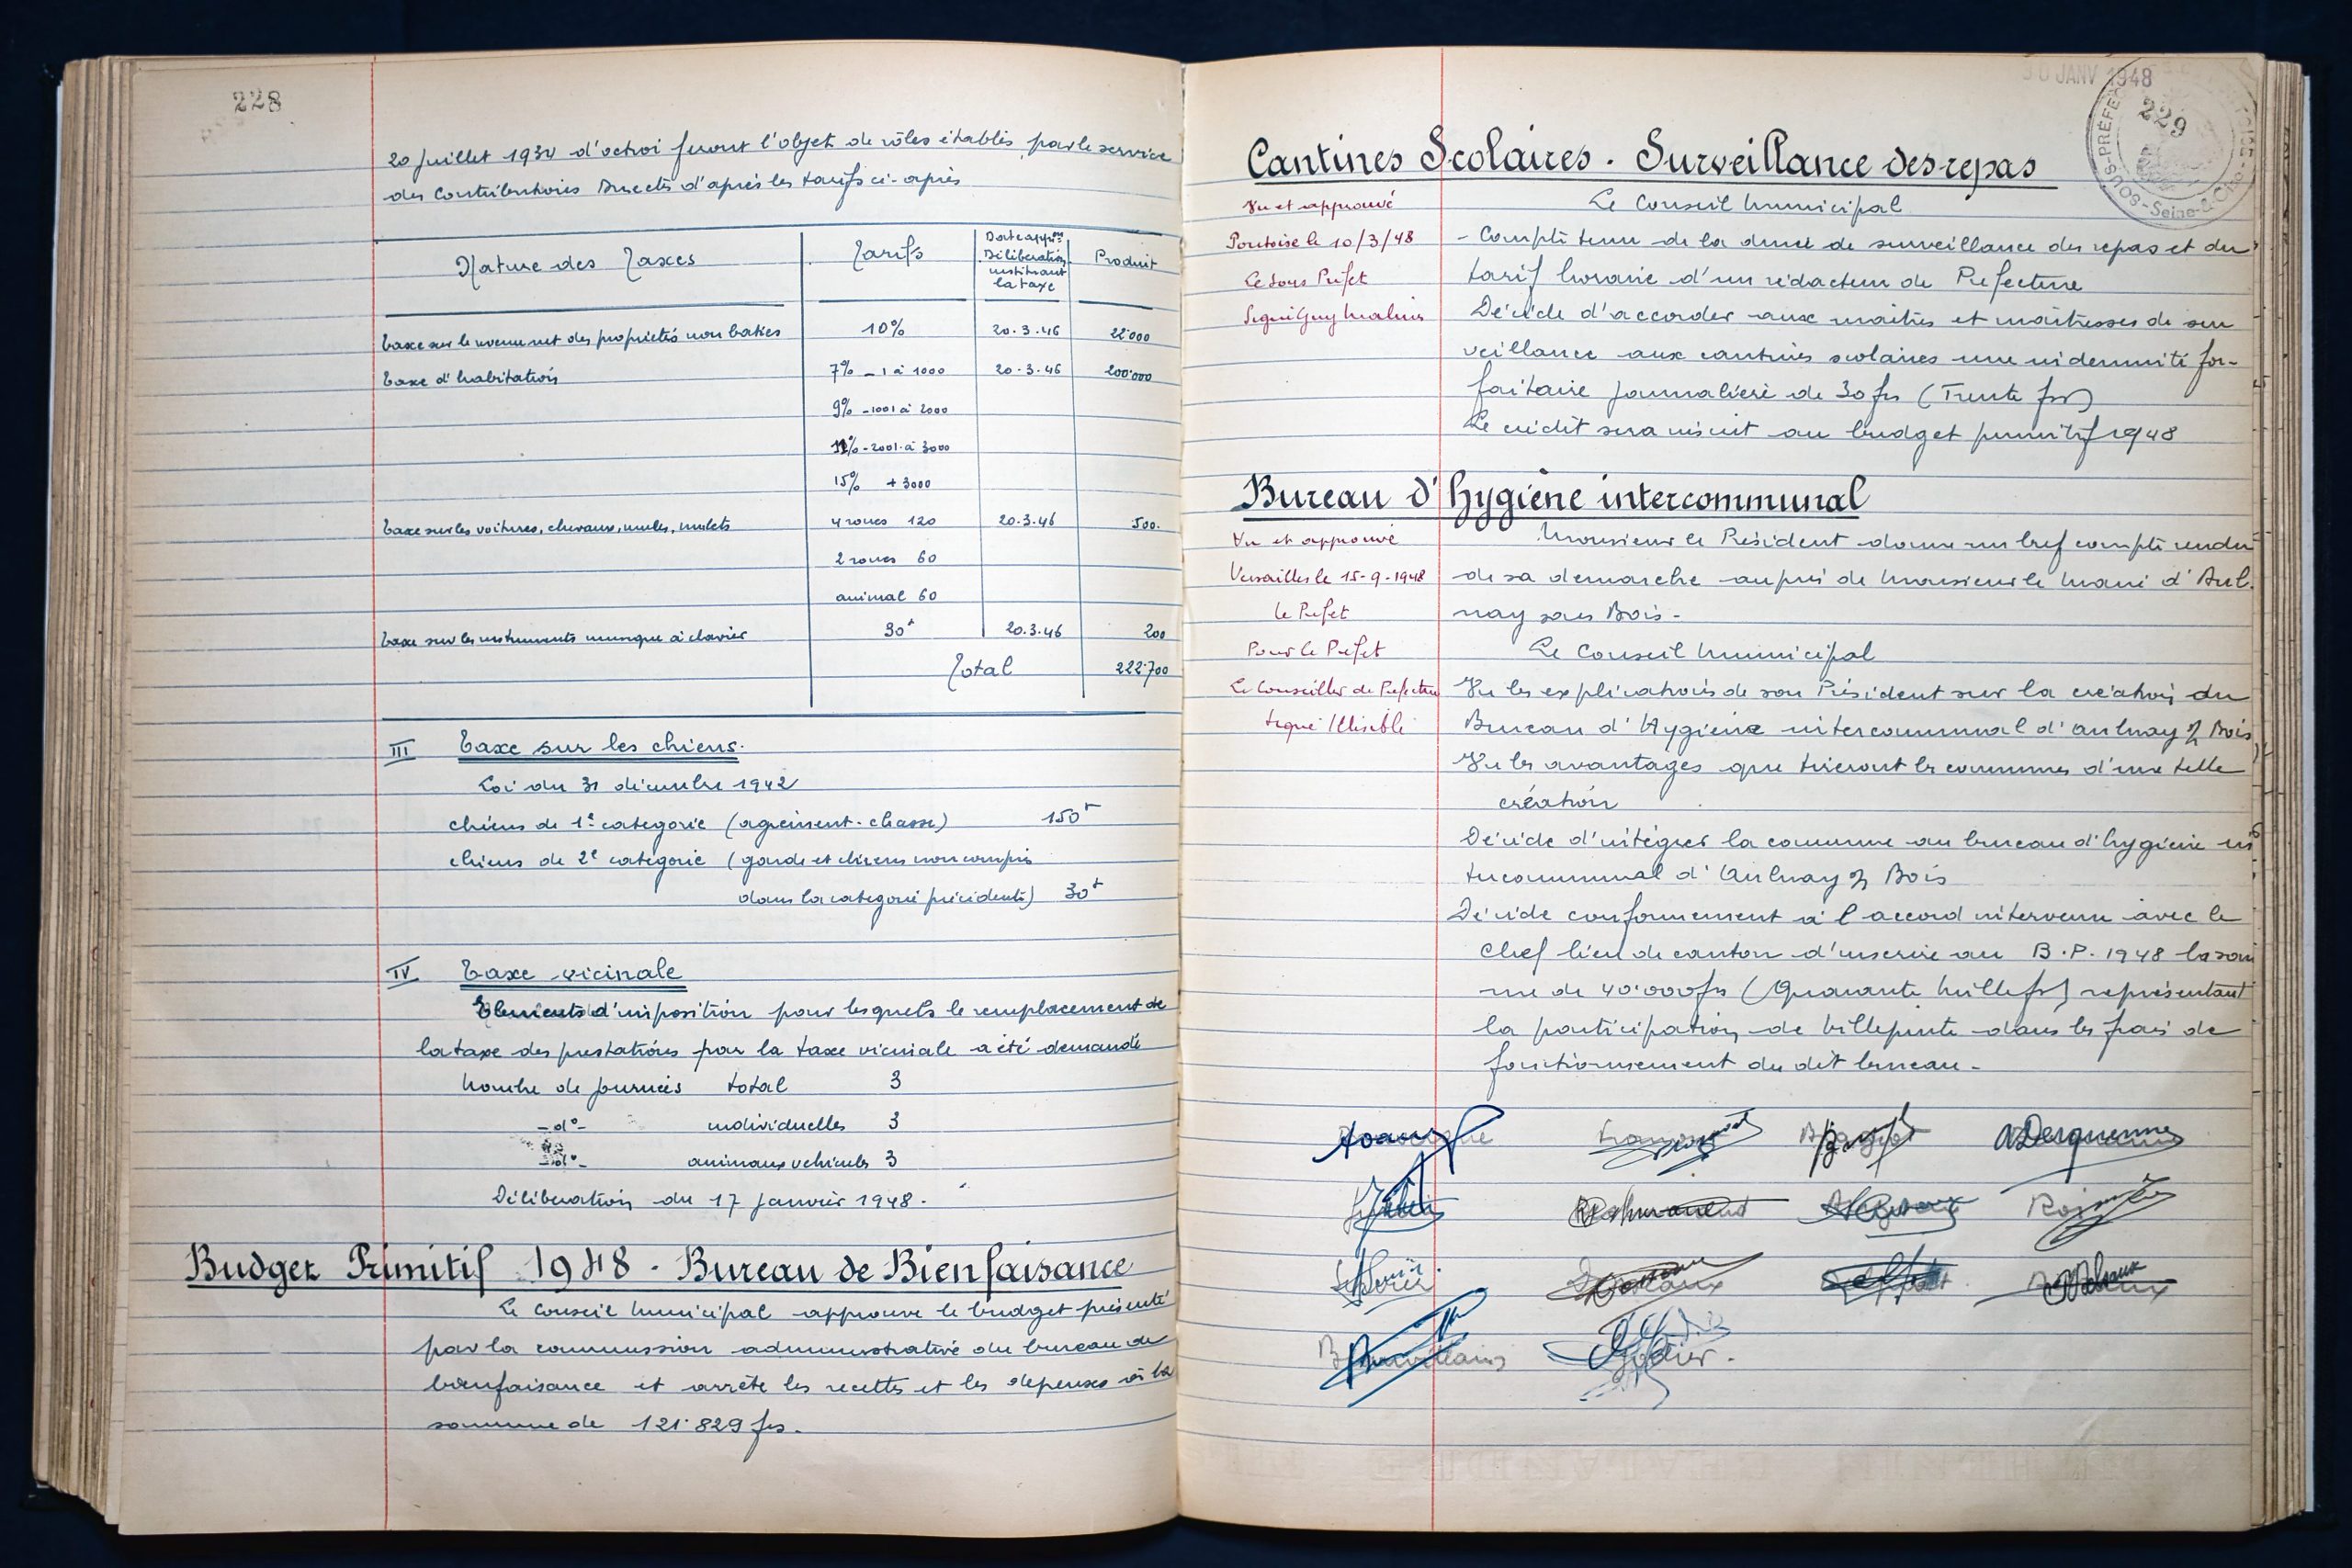 228
20 Juillet 1934 d'octroi feront l'objet de rôles établis par le service
des Contributions Directes d'après les tarifs ci-après
Nature des Taxes
Tarifs
Date appr.on
Délibération
instituant
la taxe
Produit
Taxe sur le revenu net des propriétés non baties 10% 20.3.46 22.000
Taxe d'habitation 7% - 1 à 1000 20.3.46 200.000
9% - 1001 à 2000
11% - 2001 à 3000
15% + 3000
Taxe sur les voitures, chevaux, mules, mulets 4 roues 120 20.3.46 500.
2 roues 60
animal 60
Taxe sur les instruments musique à clavier 30f 20.3.46 200
Total 222.700
III Taxe sur les chiens.
Loi du 31 décembre 1942
chiens de 1e categorie (agrément-chasse) 150f
chiens de 2e categorie (garde et chiens non compris
dans la categorie précédente) 30f
IV Taxe vicinale
Elements d'imposition pour lesquels le remplacement de
la taxe des prestations par la taxe vicinale a été demandé
Nombre de journées total 3
-d°- individuelles 3
-d°- animaux vehicules 3
Déliberation du 17 Janvier 1948.
Budget Primitif 1948 - Bureau de Bienfaisance
Le Conseil Municipal approuve le budget présenté
par la commission administrative du bureau de
bienfaisance et arrête les recettes et les depenses à la
somme de 121.829 frs.
30 JANV 1948
229
SOUS-PRÉFECTURE Seine-&-Oise
Cantines Scolaires. Surveillance des repas
Vu et approuvé
Pontoise le 10/3/48
Le Sous Préfet
Signé Guy Malines
Le Conseil Municipal
- Compte tenu de la durée de surveillance des repas et du
tarif horaire d'un rédacteur de Prefecture
Décide d'accorder aux maîtres et maîtresses de sur
veillance aux cantines scolaires une indemnité for-
faitaire journalière de 30 frs (Trente frs)
Le crédit sera inscrit au budget primitif 1948
Bureau d'Hygiène intercommunal
Vu et approuvé
Versailles le 15-9-1948
le Prefet
Pour le Prefet
Le Conseiller de Prefecture
signé Illisible
Monsieur le Président donne un bref compte rendu
de sa demarche auprès de Monsieur le Maire d'Aul.
nay sous Bois -
Le Conseil Municipal
Vu les explications de son Président sur la création du
Bureau d'Hygiène intercommunal d'Aulnay s/ Bois
Vu les avantages que tireront les communes d'une telle
création
Décide d'intégrer la commune au bureau d'hygiène in
tercommunal d'Aulnay s/ Bois
Décide conformement à l'accord intervenu avec le
Chef lieu de canton d'inscrire au B.P. 1948 la som
me de 40.000 frs (Quarante Mille frs) représentant
la participation de Villepinte dans les frais de
fonctionnement du dit bureau -
A Desquennes
Godier.